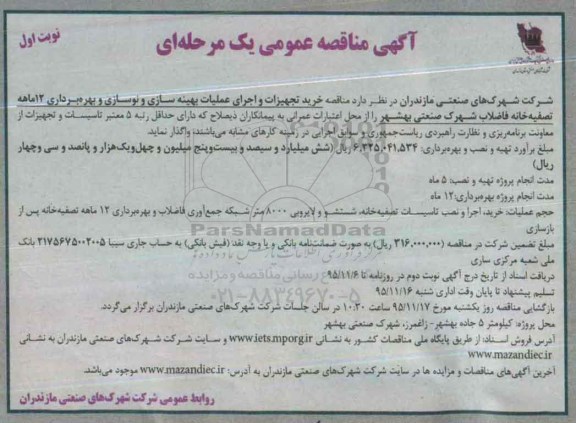 نوبت اول
آگهی مناقصه عمومی یک مرحله‌ای
شرکت شهرک‌های صنعتی مازندران در نظر دارد مناقصه خرید تجهیزات و اجرای عملیات بهینه سازی و نوسازی و بهره‌برداری ۱۲ماهه
تصفیه‌خانه فاضلاب شهرک صنعتی بهشهر را از محل اعتبارات عمرانی به پیمانکاران ذیصلاح که دارای حداقل رتبه ۵ معتبر تاسیسات و تجهیزات از
معاونت برنامه‌ریزی و نظارت راهبردی ریاست‌جمهوری و سوابق اجرایی در زمینه کارهای مشابه می‌باشند، واگذار نماید.
مبلغ برآورد تهیه و نصب و بهره‌برداری: ۶,۳۲۵,۰۴۱,۵۳۴ ریال (شش میلیارد و سیصد و بیست‌وپنج میلیون و چهل‌ویک‌هزار و پانصد و سی وچهار
ریال)
مدت انجام پروژه تهیه و نصب: ۵ ماه
مدت انجام پروژه بهره‌برداری: ۱۲ ماه
حجم عملیات: خرید، اجرا و نصب تاسیسات تصفیه‌خانه، شستشو و لایروبی ۸۰۰۰ متر شبکه جمع‌آوری فاضلاب و بهره‌برداری ۱۲ ماهه تصفیه‌خانه پس از
بازسازی
مبلغ تضمین شرکت در مناقصه (۳۱۶,۰۰۰,۰۰۰ ریال) به صورت ضمانت‌نامه بانکی و یا وجه نقد (فیش بانکی) به حساب جاری سیبا ۲۱۷۵۶۷۵۰۰۲۰۰۵ بانک
ملی شعبه مرکزی ساری
دریافت اسناد از تاریخ درج آگهی نوبت دوم در روزنامه تا ۹۵/۱۱/۶
تسلیم پیشنهاد تا پایان وقت اداری شنبه ۹۵/۱۱/۱۶
بازگشایی مناقصه روز یکشنبه مورخ ۹۵/۱۱/۱۷ ساعت ۱۰:۳۰ در سالن جلسات شرکت شهرک‌های صنعتی مازندران برگزار می‌گردد.
محل پروژه: کیلومتر ۵ جاده بهشهر- زاغمرز، شهرک صنعتی بهشهر
آدرس فروش اسناد: از طریق پایگاه ملی مناقصات کشور به نشانی www.iets.mporg.ir و سایت شرکت شهرک‌های صنعتی مازندران به نشانی
www.mazandiec.ir
آخرین آگهی‌های مناقصات و مزایده ها در سایت شرکت شهرک‌های صنعتی مازندران به آدرس: www.mazandiec.ir موجود می‌باشد.
روابط عمومی شرکت شهرک‌های صنعتی مازندران
ParsNamadData
۰۲۱-۸۸۳۴۹۶۷۰-۵